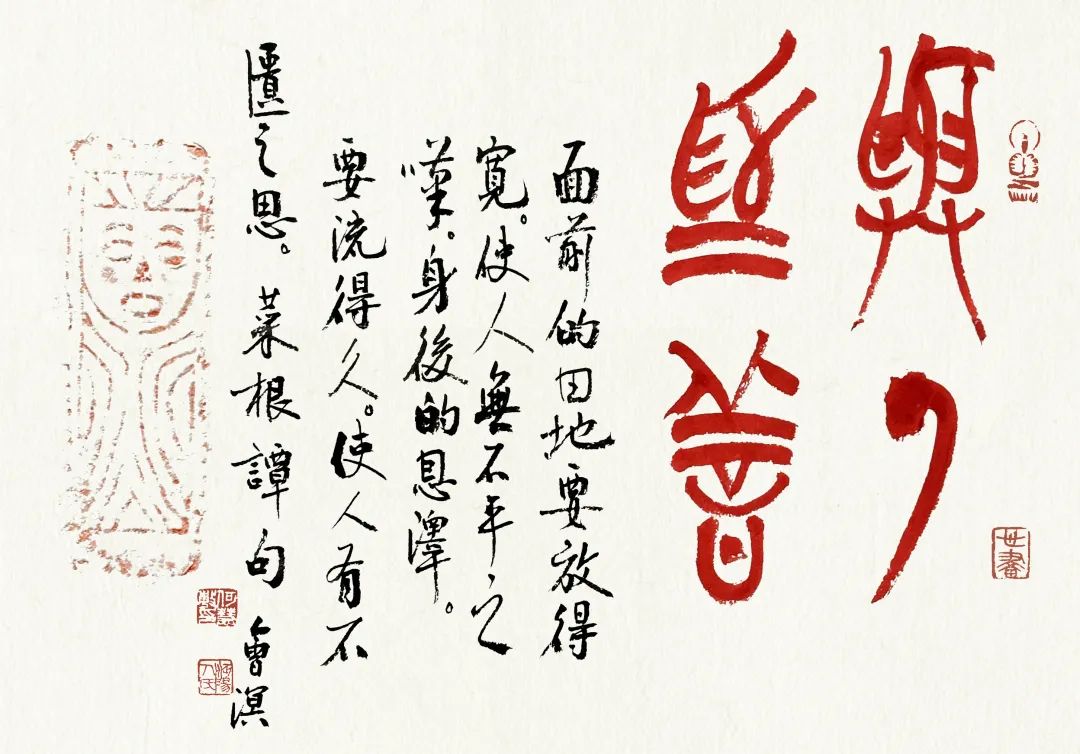 與人
為善
面前的田地要放得
寬。使人無不平之
嘆。身後的恩澤。
要流得久。使人有不
匱之思。菜根譚句 會溟